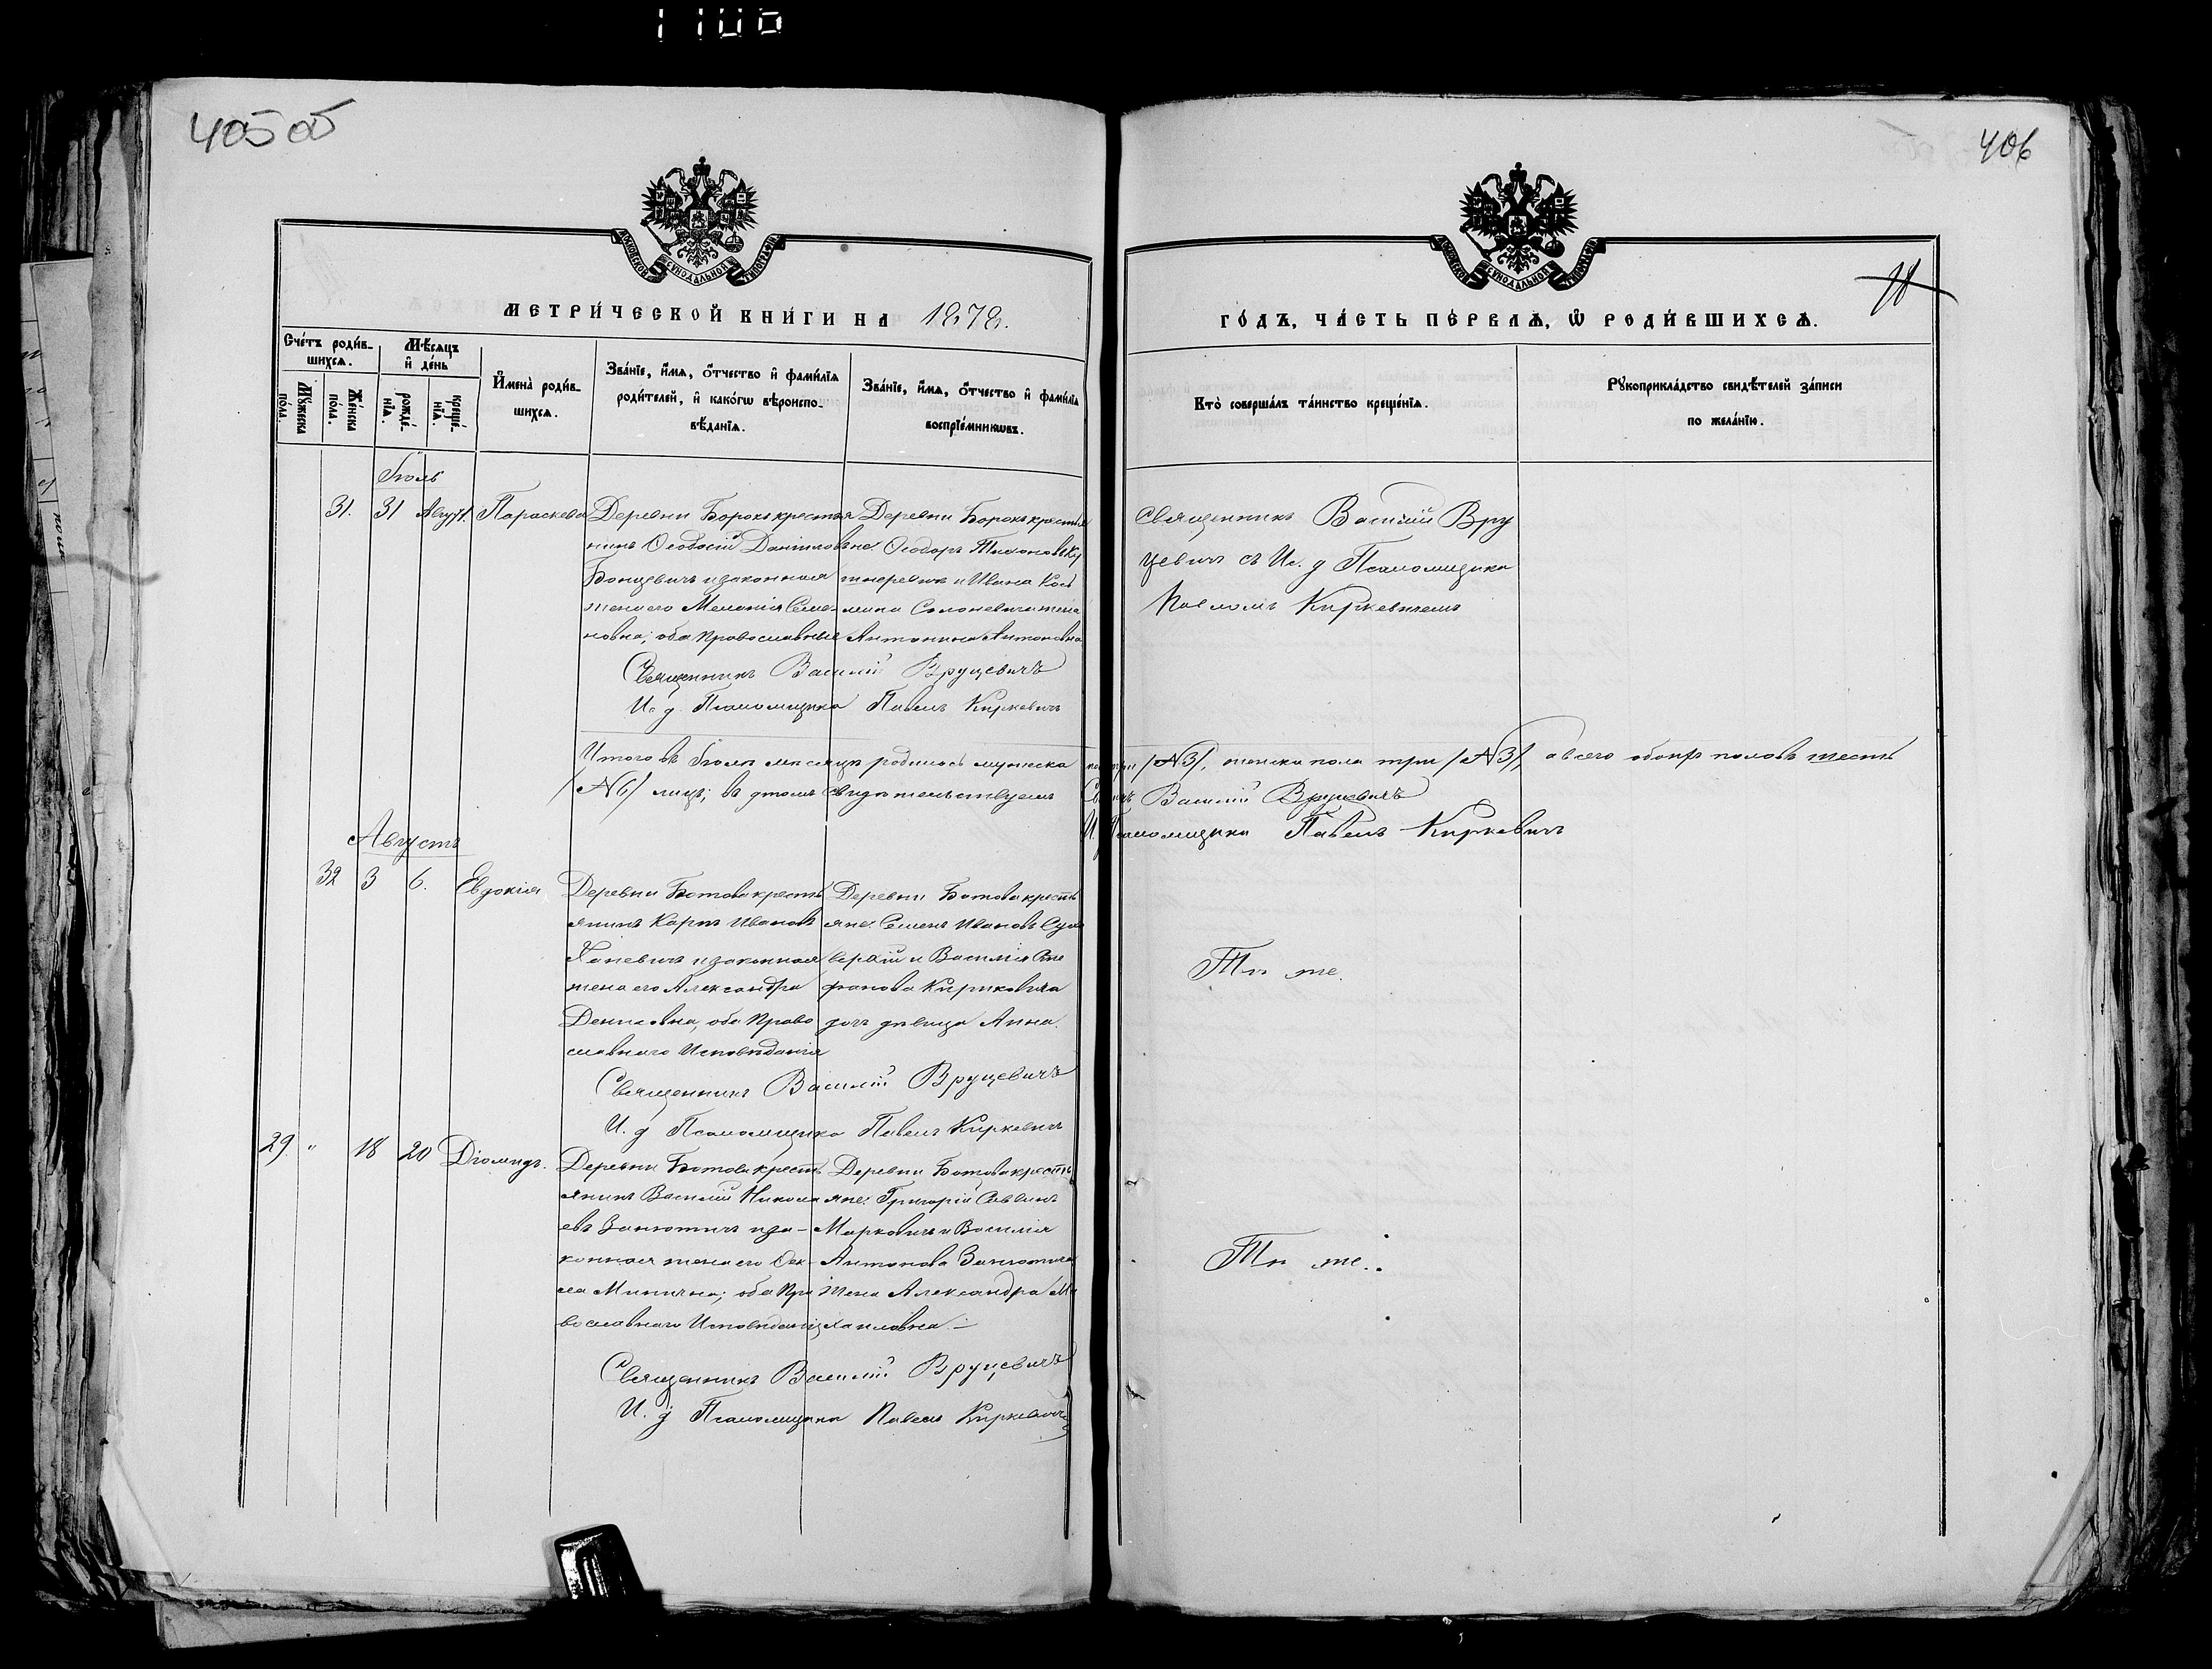 405 об
406
11
МОСКОВСКОЙ СѴНОДАЛЬНОЙ ТИПОГРАФІИ
МЕТРИ́ЧЕСКОЙ КНИ́ГИ НА 1878.
ГО́ДЪ, ЧА́СТЬ ПЕ́РВАѦ, Ѽ РОДИ́ВШИХСѦ.
Сче́тъ роди́в-
шихсѧ.
Мꙋ́жеска по́ла.
Же́нска по́ла.
Мѣ́сѧцъ и҆ де́нь
рожде́-
нїѧ.
креще́-
нїѧ.
И҆мена̀ роди́в-
шихсѧ.
Зва́нїе, и҆́мѧ, ѻ҆́тчество и҆ фами́лїѧ
роди́телей, и҆ како́гѡ вѣроиспо-
вѣ́данїѧ.
Зва́нїе, и҆́мѧ, ѻ҆́тчество и҆ фами́лїѧ
воспрїе́мникѡвъ.
Кто̀ соверша́лъ та́инство креще́нїѧ.
Рꙋкоприкла́дство свидѣ́телей за́писи
по жела́нїю.
Іюль
31. 31 Август. Параскева
Деревни Борокъ крестья
нинъ Ѳеодосій Даніиловъ
Бонцевичъ и законная
жена его Меланія Семе-
новна; оба православные
Деревни Борокъ крестья
не: Ѳеодоръ Тихоновъ
и Ивана
Солоневича жена
Антонина Антоновна
Священникъ Василій Вру
цевичъ съ Ис. д Псаломщика
Павломъ Киркевичемъ
Священникъ Василій Вруцевичъ
Ис. д. Псаломщика Павелъ Киркевичъ
Итого въ Іюлѣ мѣсяцѣ родилось мужеска пол. три /№3/, женска пола три /№3/, а всего обоихъ половъ шесть
/№6/ лицъ; въ чемъ свидѣтельствуемъ Свящ. Василій Вруцевичъ
И. д Псаломщика Павелъ Киркевичъ
Августъ
32 3 6. Евдокія
Деревни Ботова кресть
янинъ Карпъ Ивановъ
Ханевичъ и законная
жена его Александра
Денисовна, оба право
славнаго Исповѣданія
Деревни Ботова кресть
яне: Семенъ Ивановъ
и Василія Сте
фанова Кириковича
дочь дѣвица Анна.
Тѣ же.
Священникъ Василій Вруцевичъ
И. д Псаломщика Павелъ Киркевичъ
29. " 18 20 Діомидъ.
Деревни Ботова кресть
янинъ Василій Никола
евъ Занютичъ и за-
конная жена его Ѳек-
ла Минична; оба пра
вославнаго Исповѣданія
Деревни Ботова кресть
яне: Григорій Саввинъ
Марковичъ и Василія
Антонова Занютича
жена Александра Ми
хайловна. —
Тѣ же.
Священникъ Василій Вруцевичъ
И. д Псаломщика Павелъ Киркевичъ